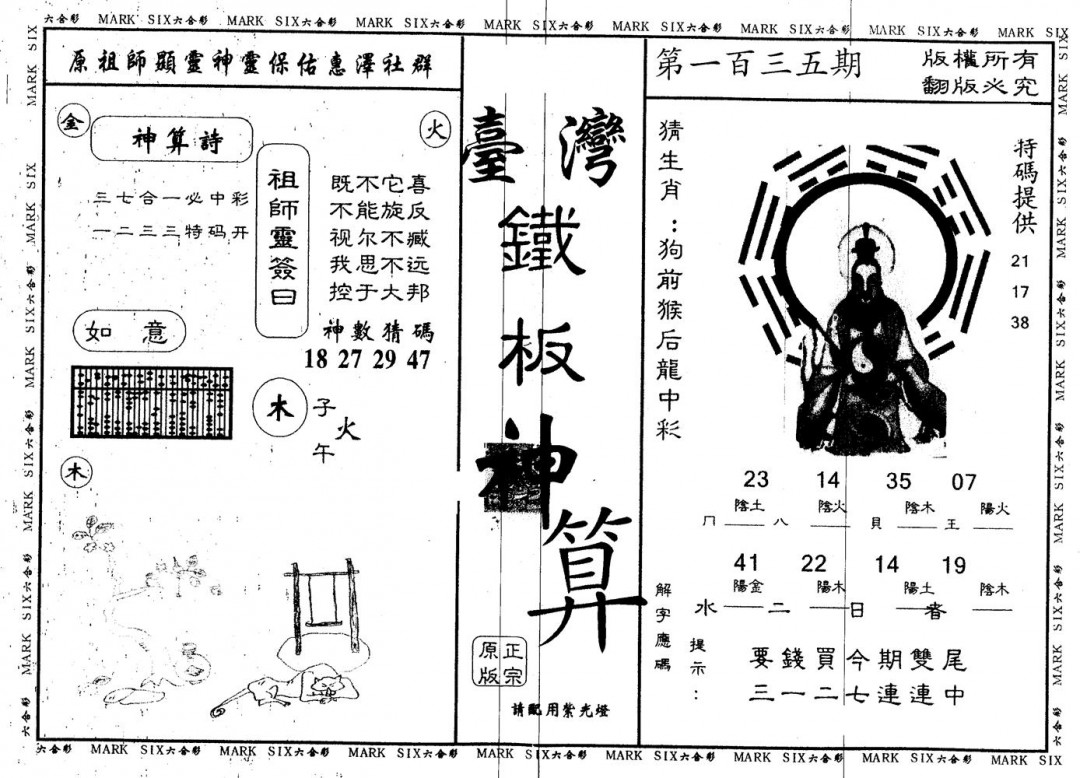 六合彩 MARK SIX六合彩 MARK SIX六合彩 MARK SIX六合彩 MARK SIX六合彩 MARK SIX六合彩 MARK SIX六合彩 MARK SIX六合彩 MARK SIX
原祖師顯靈神靈保佑惠澤社群
金
神算詩
火
三七合一必中彩
一二三三特码开
祖師靈簽曰
既不它喜
不能旋反
视尔不臧
我思不远
控于大邦
神數猜碼
18 27 29 47
如意
木
子
火
午
木
臺灣
鐵
板
神
算
正宗
原版
請配用紫光燈
第一百三五期
版權所有
翻版必究
猜生肖：狗前猴后龍中彩
特碼提供
21
17
38
23 14 35 07
陰土 陰火 陰木 陽火
冂 八 貝 王
41 22 14 19
陽金 陽木 陽土 陰木
水 二 日 者
解字應碼
提示：
要錢買今期雙尾
三一二七連連中
六合彩 MARK SIX六合彩 MARK SIX六合彩 MARK SIX六合彩 MARK SIX六合彩 MARK SIX六合彩 MARK SIX六合彩 MARK SIX六合彩 MARK SIX